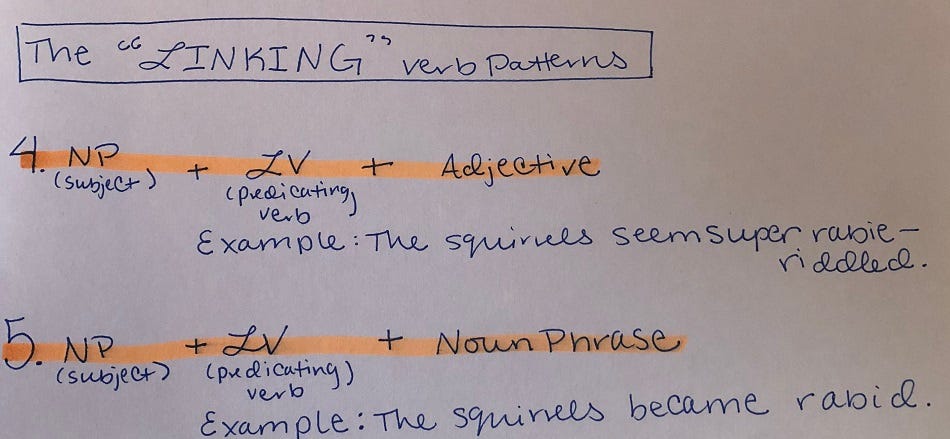 The "LINKING" verb patterns
4. NP + LV + Adjective
(subject) (predicating verb
Example: The squirrels seem super rabie-
riddled.
5. NP + LV + Noun Phrase
(subject) (predicating)
verb
Example: The squirrels became rabid.